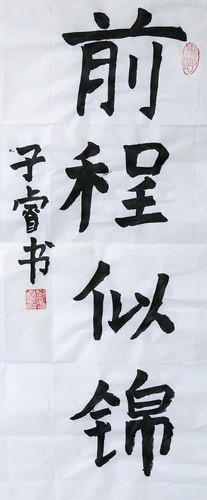 前程似锦
子睿书